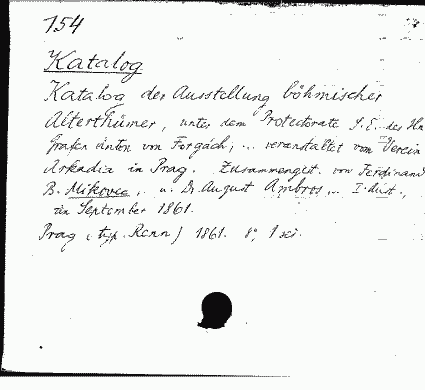 154
Katalog
Katalog der Ausstellung böhmischer
Alterthümer, unter dem Protectorate S. E. des H
Grafen Anton von Forgách, ... veranstaltet vom Verein
Arkadia in Prag. Zusammengest. von Ferdinand
B. Mikovec, u. Dr. August Ambros, ... I.
im September 1861.
Prag (typ. Renn) 1861. 8°,